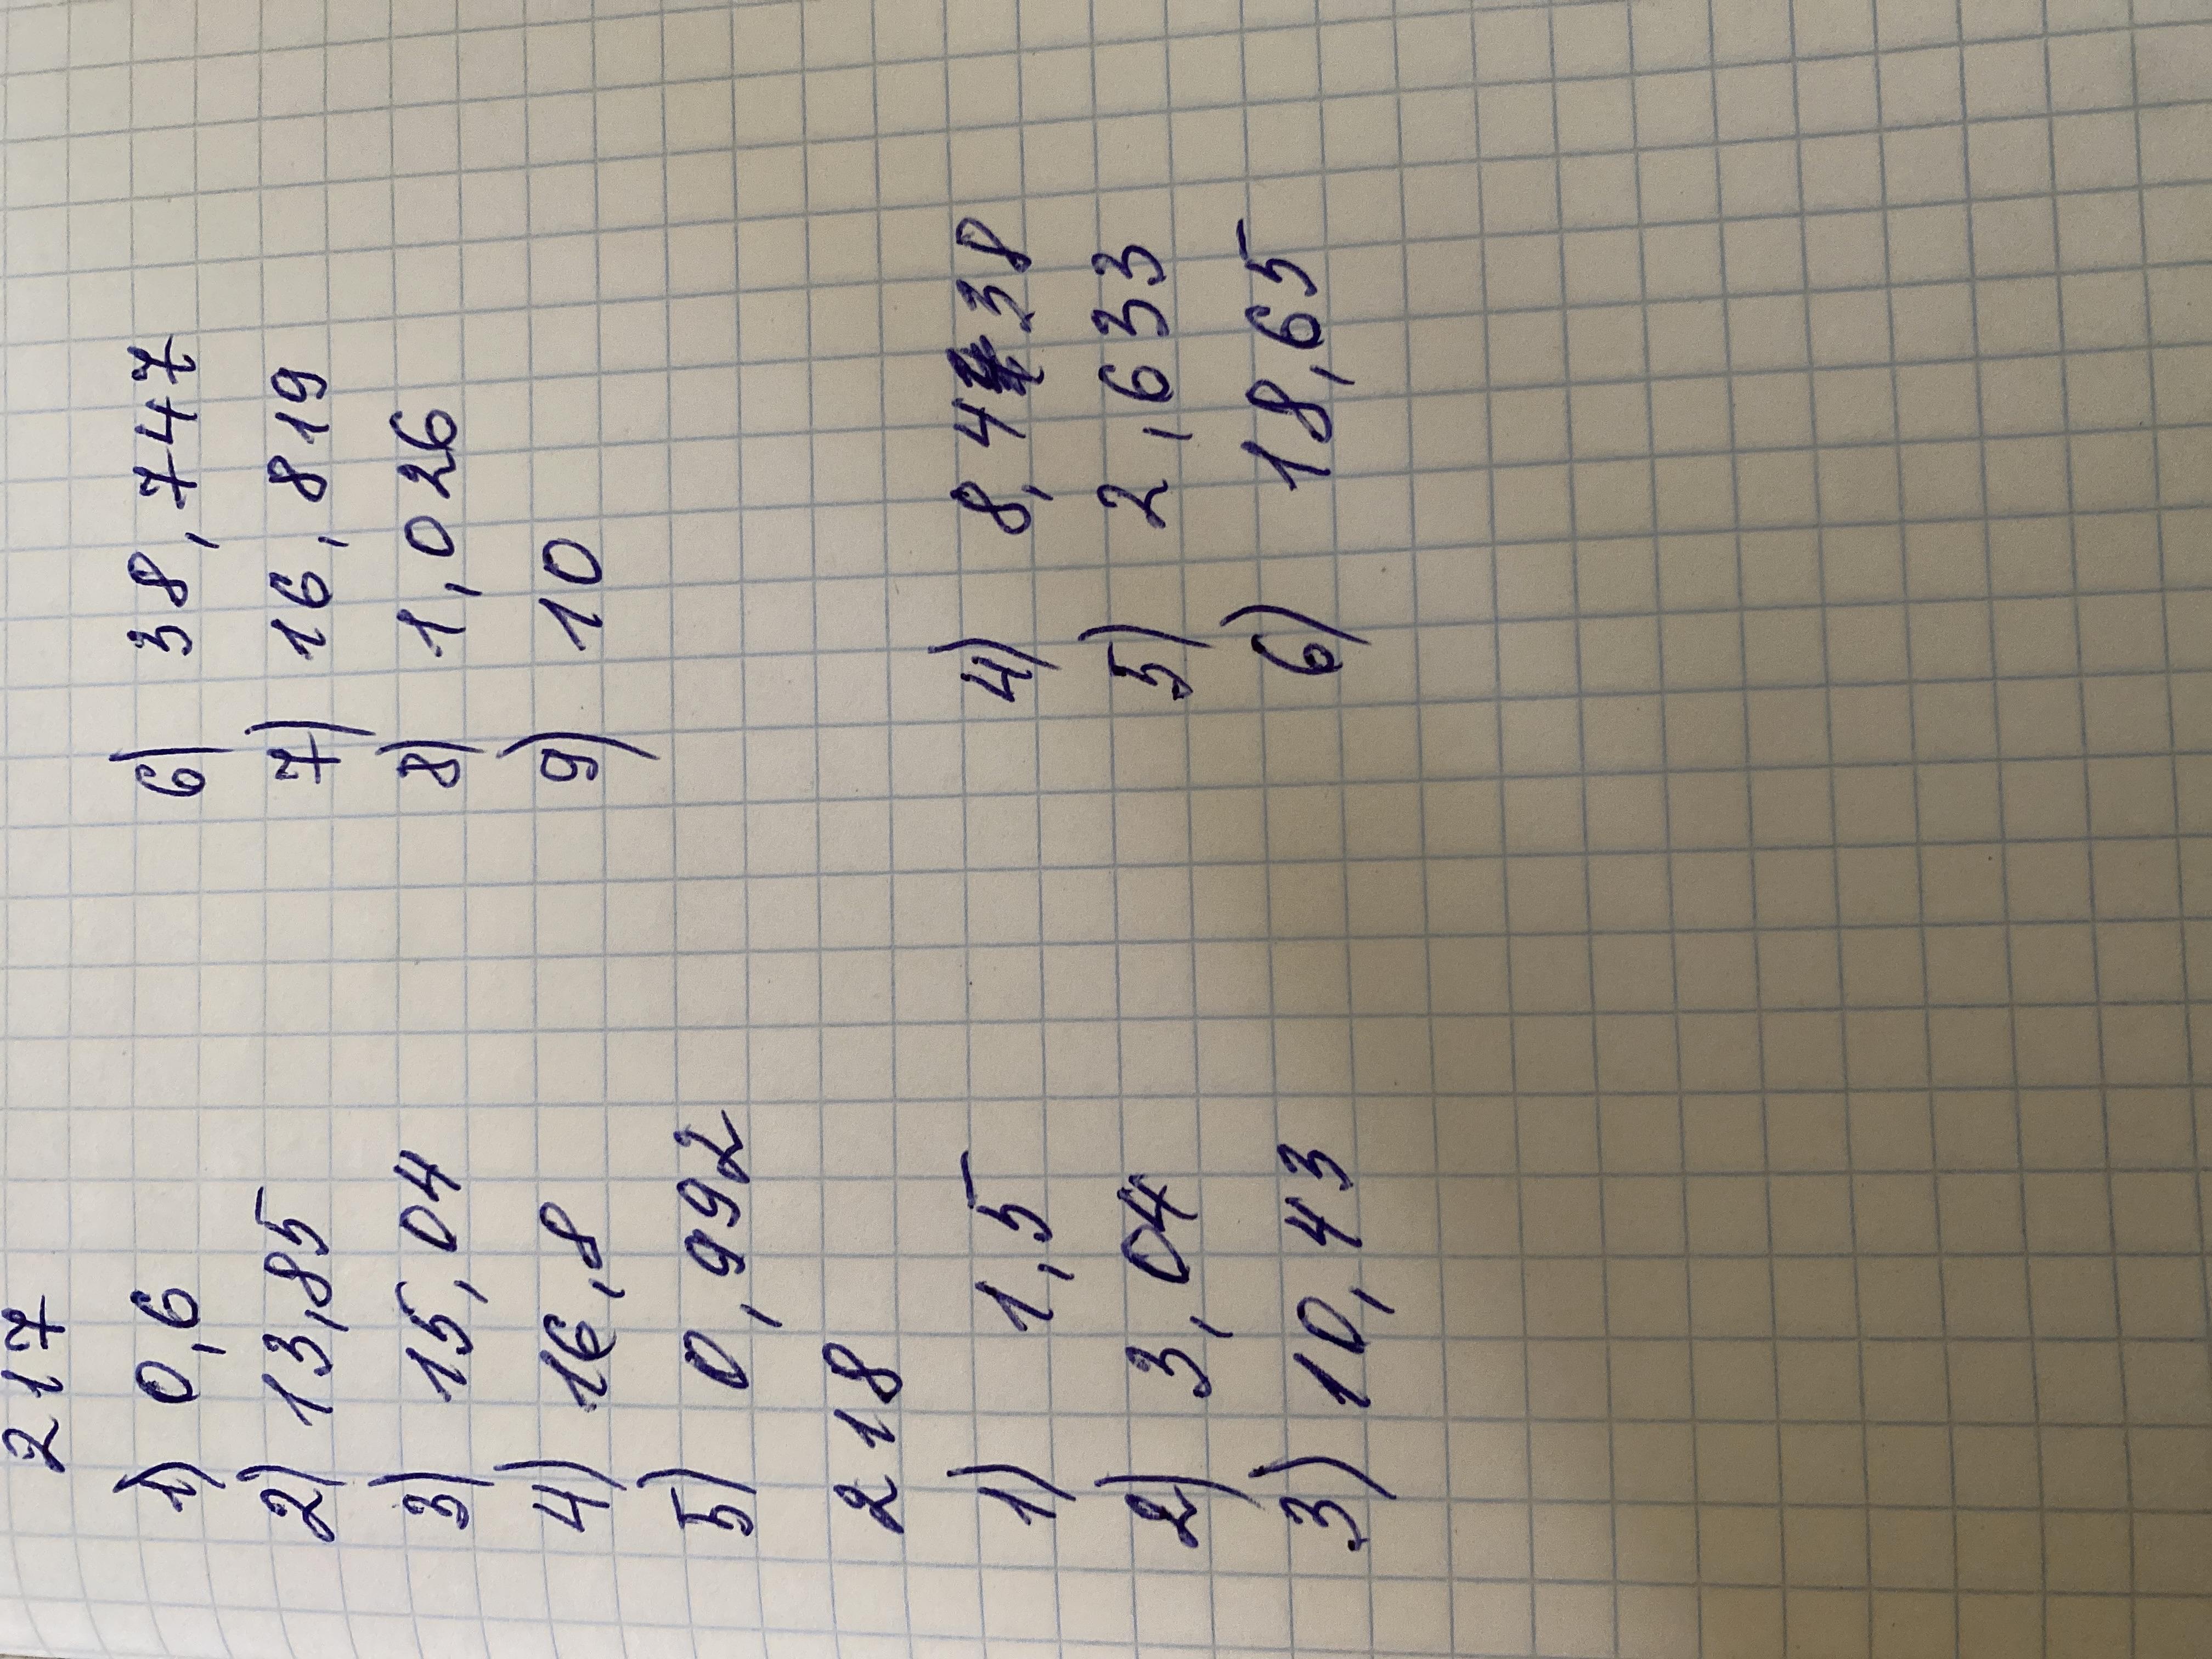 217
1) 0,6 6) 38,747
2) 13,85 7) 16,819
3) 15,04 8) 1,026
4) 16,8 9) 10
5) 0,992
218
1) 1,5 4) 8,438
2) 3,04 5) 2,633
3) 10,43 6) 18,65